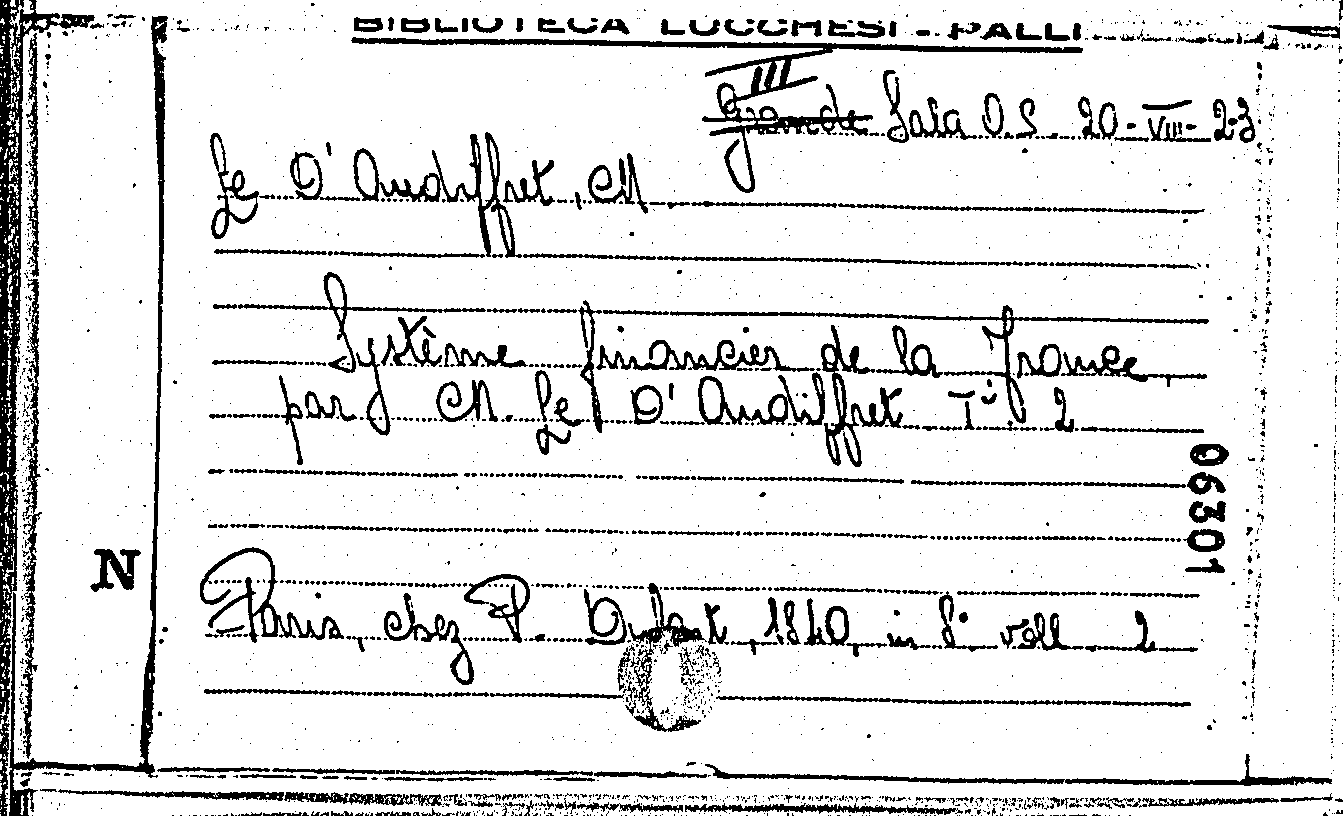 BIBLIOTECA LUCCHESI - PALLI
III
Grande Sala O.S. 20-VIII-23
Le D'Audiffret, M.
Système financier de la France,
par M. Le D'Audiffret T. 2
06301
N
Paris, chez P. Dufart, 1840, in 8° voll. 2